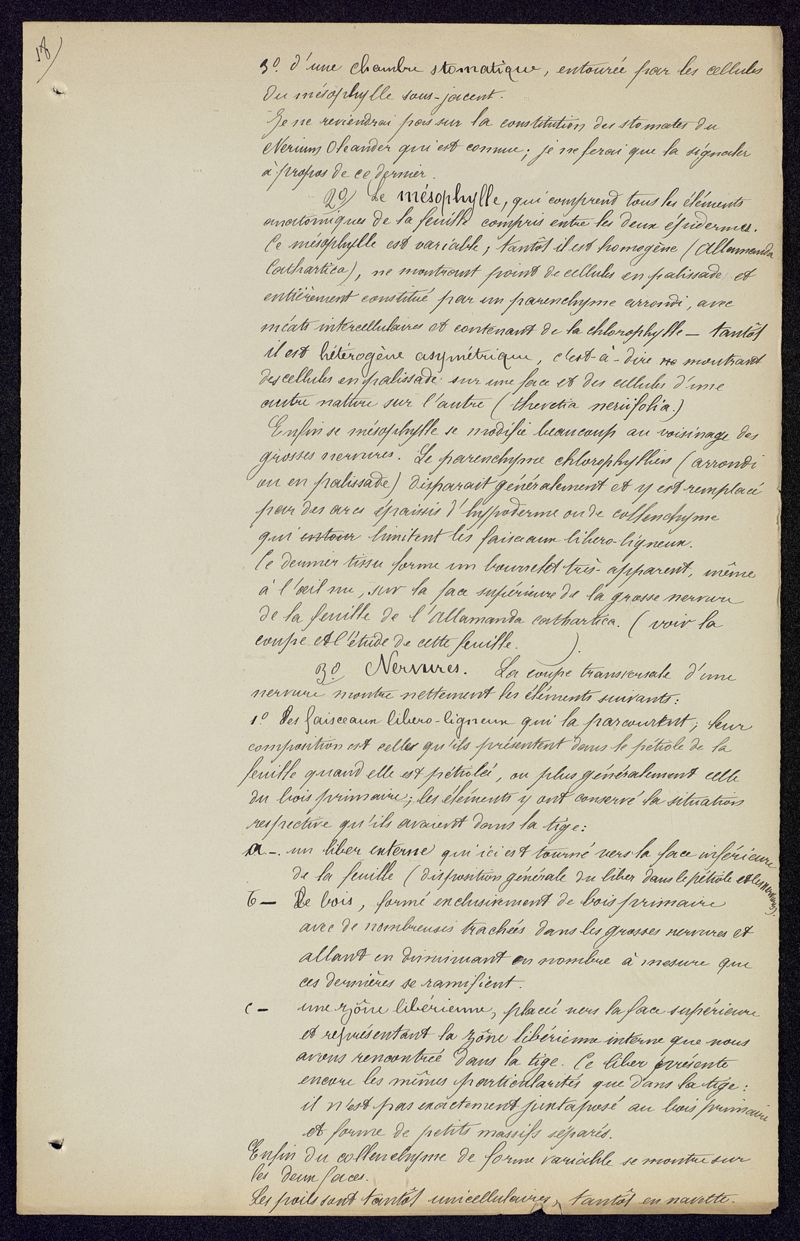 18)
3º. d'une chambre stomatique, entourée par les cellules
du mésophylle sous-jacent.
Je ne reviendrai pas sur la constitution des stomates du
Nerium Oleander qui est connue; je ne ferai que la signaler
à propos de ce dernier.
2º) Le mésophylle, qui comprend tous les éléments
anatomiques de la feuille compris entre les deux épidermes.
Ce mésophylle est variable; tantôt il est homogène (Allamanda
Cathartica), ne montrant point de cellules en palissade et
entièrement constitué par un parenchyme arrondi, avec
méats intercellulaires et contenant de la chlorophylle — tantôt
il est hétérogène asymétrique, c'est-à-dire montrant
des cellules en palissade sur une face et des cellules d'une
autre nature sur l'autre (thevetia neriifolia.)
Enfin se mésophylle se modifie beaucoup au voisinage des
grosses nervures. Le parenchyme chlorophyllien (arrondi
ou en palissade) disparait généralement et y est remplacé
par des arcs épaissis d'hypoderme ou de collenchyme
qui entour limitent les faisceaux libero-ligneux.
Ce dernier tissu forme un bourrelet très-apparent, même
à l'œil nu, sur la face supérieure de la grosse nervure
de la feuille de l'Allamanda cathartica. (voir la
coupe et l'étude de cette feuille. ).
3º Nervures. La coupe transversale d'une
nervure montre nettement les éléments suivants:
1º Des faisceaux libero-ligneux qui la parcourent; leur
composition est celle qu'ils présentent dans le pétiole de la
feuille quand elle est pétiolée, ou plus généralement celle
du bois primaire; les éléments y ont conservé la situation
respective qu'ils avaient dans la tige:
a — un liber externe qui ici est tourné vers la face inférieure
de la feuille (disposition générale du liber dans le pétiole et les nervures);
b — Le bois, formé exclusivement de bois primaire
avec de nombreuses trachées dans les grosses nervures et
allant en diminuant en nombre à mesure que
ces dernières se ramifient.
c — une zône libérienne, placée vers la face supérieure
et représentant la zône libérienne interne que nous
avons rencontrée dans la tige. Ce liber présente
encore les mêmes particularités que dans la tige:
il n'est pas exactement juxtaposé au bois primaire
et forme de petits massifs séparés.
Enfin du collenchyme de forme variable se montre sur
les deux faces.
Les poils sont tantôt unicellulaires, tantôt en navette.